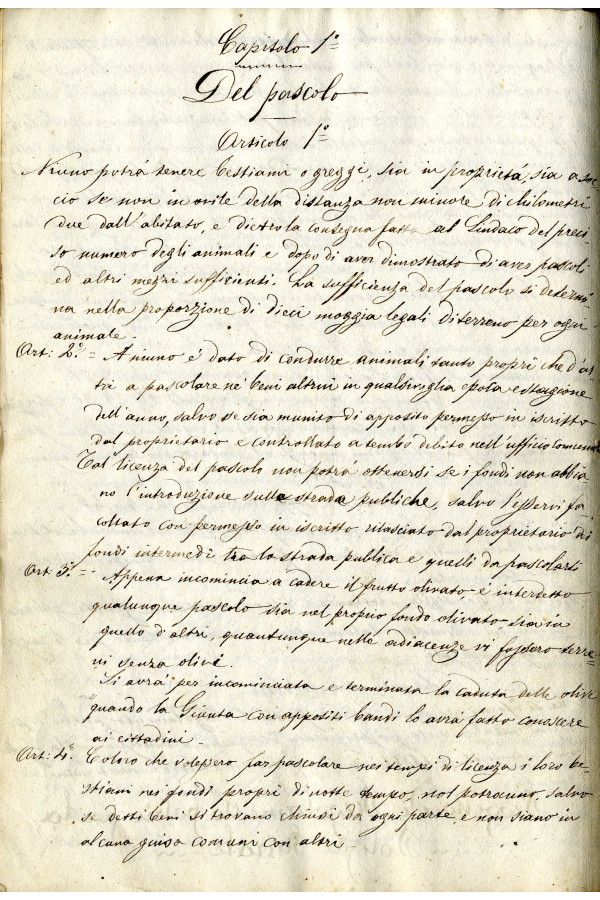 Capitolo 1º
Del pascolo
Articolo 1º
Niuno potrà tenere bestiami o greggi, sia in proprietà, sia a soc
cio se non in ovile della distanza non minore di chilometri
due dall'abitato, e dietro la consegna fatta al Sindaco del preci
so numero degli animali e dopo di aver dimostrato di aver pascoli
ed altri mezzi sufficienti. La sufficienza del pascolo si determi
na nella proporzione di dieci moggia legali di terreno per ogni
animale
Art: 2º = A niuno é dato di condurre animali tanto propri che d'al
tri a pascolare né beni altrui in qualsivoglia epoca e stagione
dell'anno, salvo se sia munito di apposito permesso in iscritto
dal proprietario e controllato a tempo debito nell'ufficio comunale
Tal licenza del pascolo non potrà ottenersi se i fondi non abbia
no l'introduzione sulle strade publiche, salvo l'esservi fa
coltato con permesso in iscritto rilasciato dal proprietario dei
fondi intermedi tra la strada publica e quelli da pascolarsi
Art: 3º = Appena incomincia a cadere il frutto olivato é interdetto
qualunque pascolo sia nel proprio fondo olivato sia in
quello d'altri, quantunque nelle adiacenze vi fossero terre
ni senza olivi.
Si avrà per incominciata e terminata la caduta delle olive
quando la Giunta con appositi bandi lo avrà fatto conoscere
ai cittadini.
Art: 4º. Coloro che volessero far pascolare nei tempi di licenza i loro be
stiami nei fondi propri di notte tempo, nol potranno, salvo
se detti beni si trovano chiusi da ogni parte, e non siano in
alcuna guisa comuni con altri